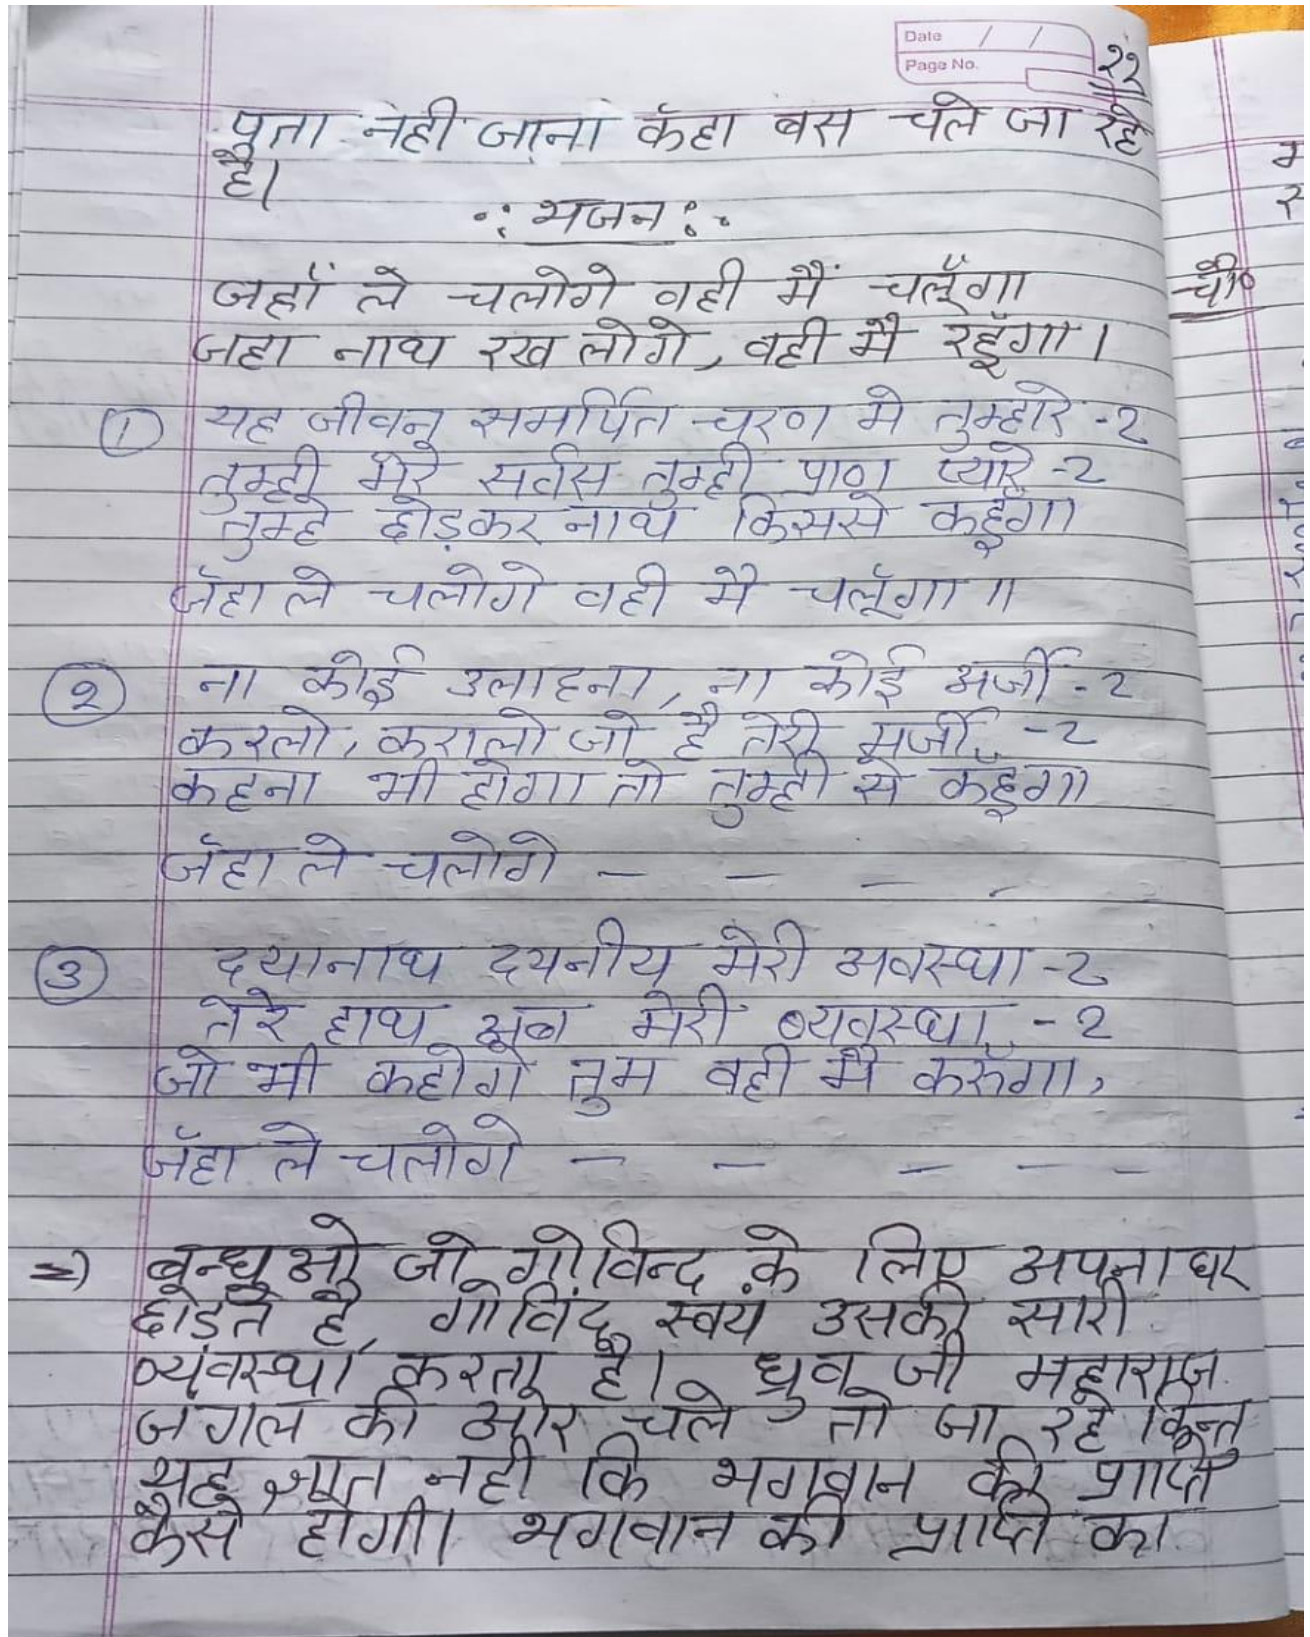 Date / /
Page No.
२२
पता नही जाना कँहा बस चले जा रहे
है।
∴ भजन ∴
जहाँ ले चलोगे वही मैं चलूँगा
जहा नाथ रख लोगे, वही मै रहूँगा।
① यह जीवन समर्पित चरण मे तुम्हारे -2
तुम्ही मेरे सर्वस तुम्ही प्राण प्यारे -2
तुम्हे छोड़कर नाथ किससे कहूँगा
जँहा ले चलोगे वही मै चलूँगा ॥
② ना कोई उलाहना, ना कोई अर्जी -2
करलो, करालो जो है तेरी मर्जी -2
कहना भी होगा तो तुम्ही से कहूँगा
जँहा ले चलोगे - - - -
③ दयानाथ दयनीय मेरी अवस्था -2
तेरे हाथ अब मेरी व्यवस्था -2
जो भी कहोगे तुम वही मै करूँगा,
जँहा ले चलोगे - - - - -
=> बन्धुओ जो गोविन्द के लिए अपना घर
छोडते है, गोविंद स्वयं उसकी सारी
व्यवस्था करता है। ध्रुव जी महाराज
जगल की ओर चले तो जा रहे किन्तु
यह ज्ञात नही कि भगवान की प्राप्ति
कैसे होगी। भगवान की प्राप्ति का
चौ०